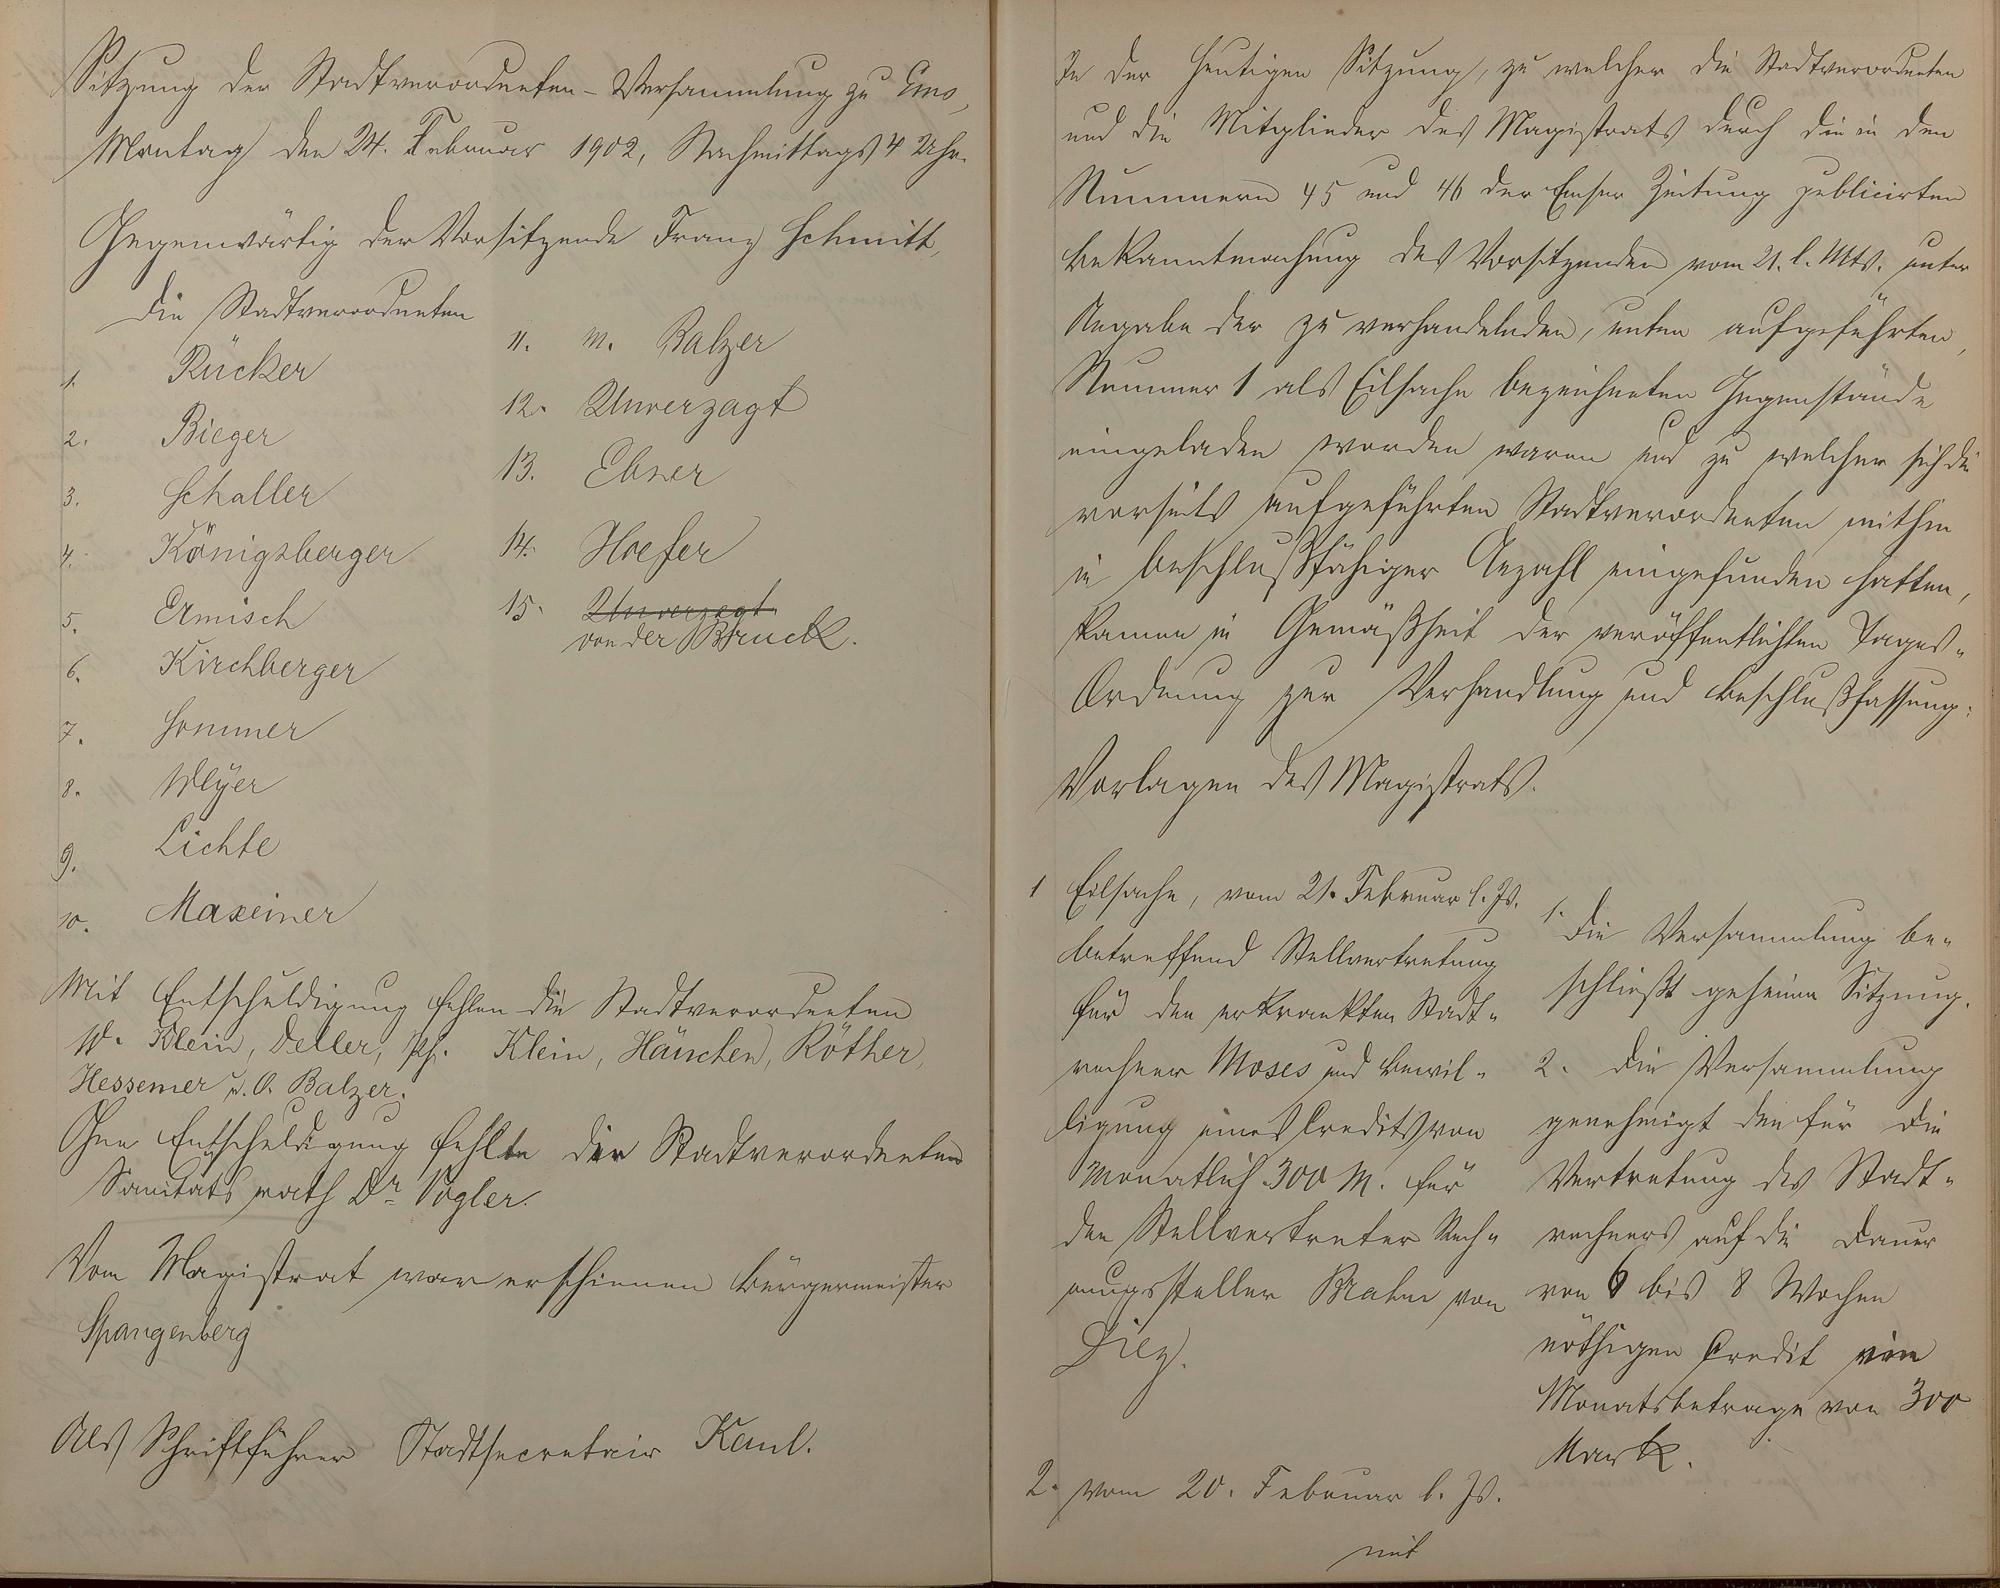 Sitzung der Stadtverordneten-Versammlung zu Ems,
Montag den 24. Februar 1902, Nachmittags 4 Uhr.
Gegenwärtig der Vorsitzende Franz Schmitt,
die Stadtverordneten
1. Rücker
2. Bieger
3. Schaller
4. Königsberger
5. Ermisch
6. Kirchberger
7. Sommer
8. Weyer
9. Lichte
10. Maxeiner
11. M. Balzer
12. Unverzagt
13. Ebner
14. Hoefer
15. Unverzagt
von der Bruck.
Mit Entschuldigung fehlen die Stadtverordneten
W. Klein, Deller, Ph. Klein, Hänchen, Röther,
Hessemer u. O. Balzer.
Ohne Entschuldigung fehlte der Stadtverordneten
Sanitätsrath Dr. Vogler.
Vom Magistrat war erschienen Bürgermeister
Spangenberg
Als Schriftführer Stadtsecretair Kaul.
In der heutigen Sitzung, zu welcher die Stadtverordneten
und die Mitglieder des Magistrats durch die in den
Nummern 45 und 46 der Emser Zeitung publicirten
Bekanntmachung des Vorsitzenden vom 21. l. Mts. unter
Angabe der zu verhandelnden, unten aufgeführten,
Nummer 1 als Eilsache bezeichneten Gegenstände
eingeladen worden waren und zu welcher sich die
vorseits aufgeführten Stadtverordneten mithin
in beschlußfähiger Anzahl eingefunden hatten,
kamen in Gemäßheit der veröffentlichten Tages-
Ordnung zur Verhandlung und Beschlußfassung:
Vorlagen des Magistrats.
1 Eilsache, vom 21. Februar l. Js.
betreffend Stellvertretung
für den erkrankten Stadt-
rechner Moses und Bewil-
ligung eines Credits von
monatlich 300 M. für
den Stellvertreter Rech-
nungssteller Mahn von
Diez.
2. vom 20. Februar l. Js.
mit
1. Die Versammlung be-
schließt geheime Sitzung.
2. Die Versammlung
genehmigt den für die
Vertretung des Stadt-
rechners auf die Dauer
von 6 bis 8 Wochen
nöthigen Credit im
Monatsbetrage von 300
Mark.